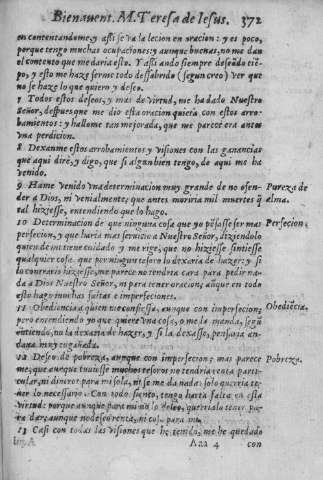 Bienauent. M. Teresa de Iesus. 372
en contentandome, y assi se va la lecion en oracion: y es poco,
porque tengo muchas ocupaciones: y aunque buenas, no me dan
el contento que me daria esto. Y assi ando siempre deseãdo tiẽ-
po, y esto me haze serme todo dessabrido (segun creo) ver que
no se haze lo que quiero y deseo.
7 Todos estos deseos, y mas de virtud, me ha dado Nuestro
Señor, despues que me dio esta oracion quieta con estos arro-
bamientos: y hallome tan mejorada, que me parece era antes
vna perdicion.
8 Dexanme estos arrobamientos y visiones con las ganancias
que aqui dirè, y digo, que si algun bien tengo, de aqui me ha
venido.
9 Hame venido vna determinacion muy grande de no ofen-
der a Dios, ni venialmente, que antes moriria mil muertes q̃
tal hiziesse, entendiendo que lo hago.
Pureza de
alma.
10 Determinacion de que ninguna cosa que yo pẽsasse ser mas
perfecion, y que haria mas seruicio a Nuestro Señor, diziendolo
quien de mi tiene cuidado y me rige, que no hiziesse sintiesse
qualquier cosa que por ningun tesoro lo dexaria de hazer: y si
lo contrario hiziesse, me parece no tendria cara para pedir na-
da a Dios Nuestro Señor, ni para tener oracion; aũque en todo
esto hago muchas faltas e imperfeciones.
Perfecion.
11 Obediencia a quien me confiessa, aunque con imperfeciõ;
pero entendiendo yo que quiere vna cosa, o me la manda, segũ
entiendo, no la dexaria de hazer, y si la dexasse, pensaria an-
daua muy engañada.
Obediẽcia.
12 Deseo de pobreza, aunque con imperfecion; mas parece
me, que aunque tuuiesse muchos tesoros no tendria renta parti-
cular, ni dineros para mi sola, ni se me da nada: solo querria te-
ner lo necessario. Con todo siento, tengo harta falta en esta
virtud: porque aunque para mi no lo deseo, querrialo tener pa-
ra dar; aunque no deseo renta, ni cosa para mi.
Pobreza.
13 Casi con todas las visiones que he tenido, me he quedado
Aaa 4 con